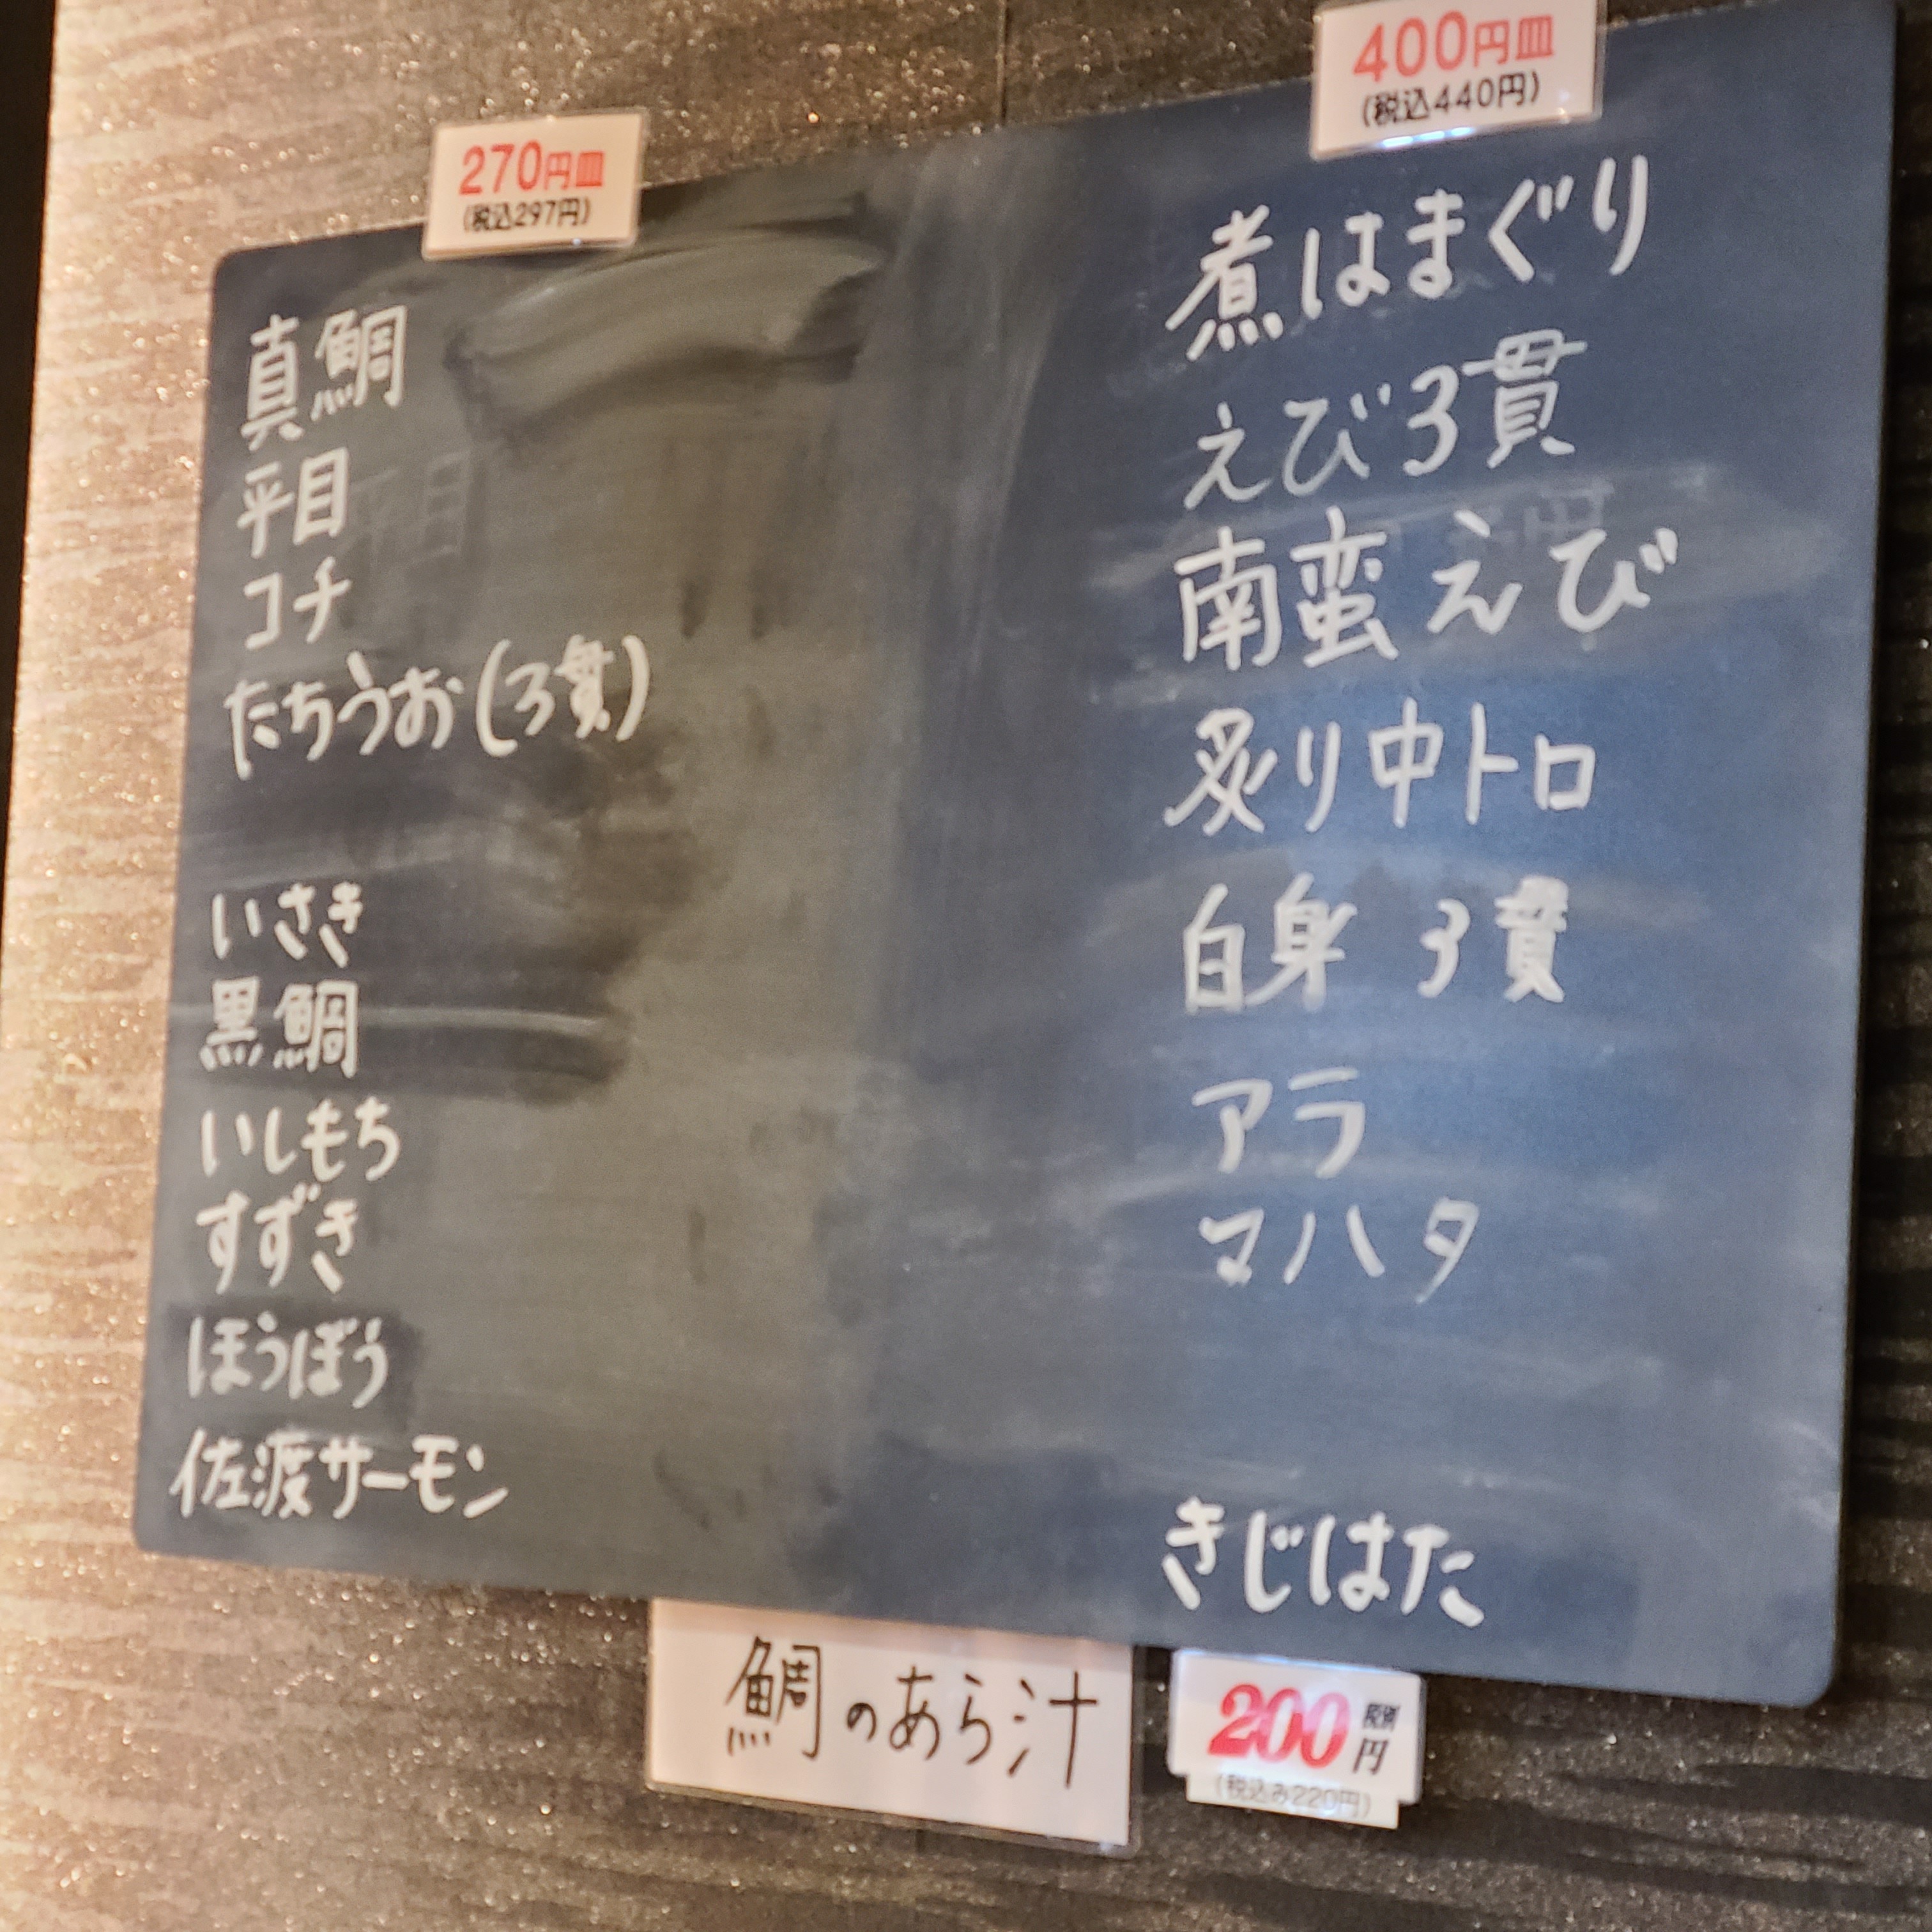 270円皿
(税込297円)
真鯛
平目
コチ
たちうお(3貫)
いさき
黒鯛
いしもち
すずき
ほうぼう
佐渡サーモン
400円皿
(税込440円)
煮はまぐり
えび3貫
南蛮えび
炙り中トロ
白身 3貫
アラ
マハタ
きじはた
鯛のあら汁
200円 税別
(税込み220円)